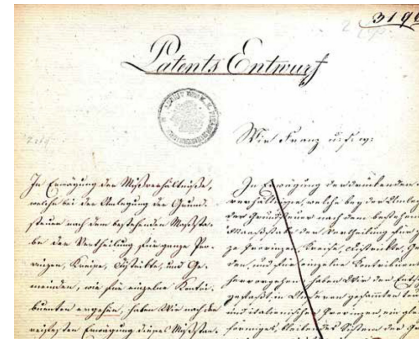 3196
Patents Entwurf
Wir Franz u. s. w.
In Erwägung der Mißverhältnisse,
welche bei der Umlegung der Grund-
steuer nach dem bestehenden Maßsta-
be der Vertheilung für ganze Pro-
vinzen, Kreise, Distrikte, und Ge-
meinden, wie für einzelne Contri-
buenten entstehen, haben Wir nach der
reifesten Erwägung dieses
In Erwägung der drückenden
verhältnisse, welche bey der Umlage
der Grundsteuer nach dem bestehen
Maaßstabe der Vertheilung für gan
ze Provinzen, Kreise, Distrikte, Ge
den, und für einzelne Contribuent
hervorgehen, haben Wir den Ent
gefaßt, in Unseren gesamten
und italienischen Provinzen ein gl
förmiges, System der G